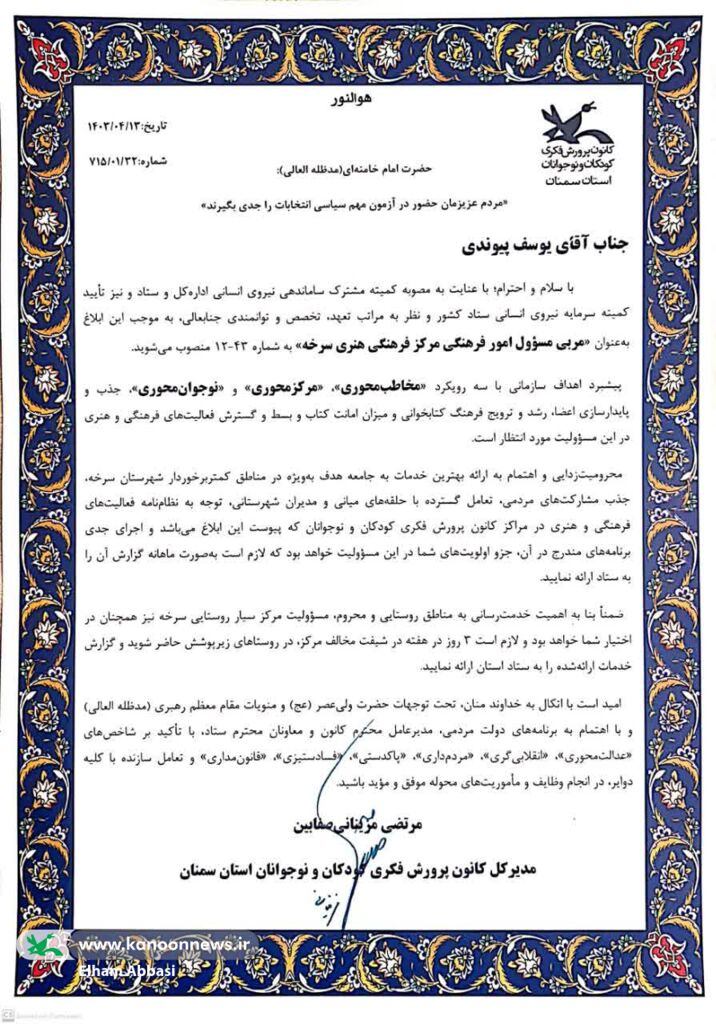 هوالنور
کانون پرورش فکری
کودکان و نوجوانان
استان سمنان
تاریخ:۱۴۰۳/۰۴/۱۳
شماره:۷۱۵/۰۱/۳۲
حضرت امام خامنه‌ای(مدظله العالی):
«مردم عزیزمان حضور در آزمون مهم سیاسی انتخابات را جدی بگیرند»
جناب آقای یوسف پیوندی
با سلام و احترام؛ با عنایت به مصوبه کمیته مشترک ساماندهی نیروی انسانی اداره‌کل و ستاد و نیز تأیید
کمیته سرمایه نیروی انسانی ستاد کشور و نظر به مراتب تعهد، تخصص و توانمندی جنابعالی، به موجب این ابلاغ
به‌عنوان «مربی مسؤول امور فرهنگی مرکز فرهنگی هنری سرخه» به شماره ۴۳-۱۲ منصوب می‌شوید.
پیشبرد اهداف سازمانی با سه رویکرد «مخاطب‌محوری»، «مرکزمحوری» و «نوجوان‌محوری»، جذب و
پایدارسازی اعضا، رشد و ترویج فرهنگ کتابخوانی و میزان امانت کتاب و بسط و گسترش فعالیت‌های فرهنگی و هنری
در این مسؤولیت مورد انتظار است.
محرومیت‌زدایی و اهتمام به ارائه بهترین خدمات به جامعه هدف به‌ویژه در مناطق کمتربرخوردار شهرستان سرخه،
جذب مشارکت‌های مردمی، تعامل گسترده با حلقه‌های میانی و مدیران شهرستانی، توجه به نظام‌نامه فعالیت‌های
فرهنگی و هنری در مراکز کانون پرورش فکری کودکان و نوجوانان که پیوست این ابلاغ می‌باشد و اجرای جدی
برنامه‌های مندرج در آن، جزو اولویت‌های شما در این مسؤولیت خواهد بود که لازم است به‌صورت ماهانه گزارش آن را
به ستاد ارائه نمایید.
ضمناً بنا به اهمیت خدمت‌رسانی به مناطق روستایی و محروم، مسؤولیت مرکز سیار روستایی سرخه نیز همچنان در
اختیار شما خواهد بود و لازم است ۳ روز در هفته در شیفت مخالف مرکز، در روستاهای زیرپوشش حاضر شوید و گزارش
خدمات ارائه‌شده را به ستاد استان ارائه نمایید.
امید است با اتکال به خداوند منان، تحت توجهات حضرت ولی‌عصر (عج) و منویات مقام معظم رهبری (مدظله العالی)
و با اهتمام به برنامه‌های دولت مردمی، مدیرعامل محترم کانون و معاونان محترم ستاد، با تأکید بر شاخص‌های
«عدالت‌محوری»، «انقلابی‌گری»، «مردم‌داری»، «پاکدستی»، «فسادستیزی»، «قانون‌مداری» و تعامل سازنده با کلیه
دوایر، در انجام وظایف و مأموریت‌های محوله موفق و مؤید باشید.
مرتضی مزینانی‌صفابین
مدیرکل کانون پرورش فکری کودکان و نوجوانان استان سمنان
www.kanoonnews.ir
Elham Abbasi
CS